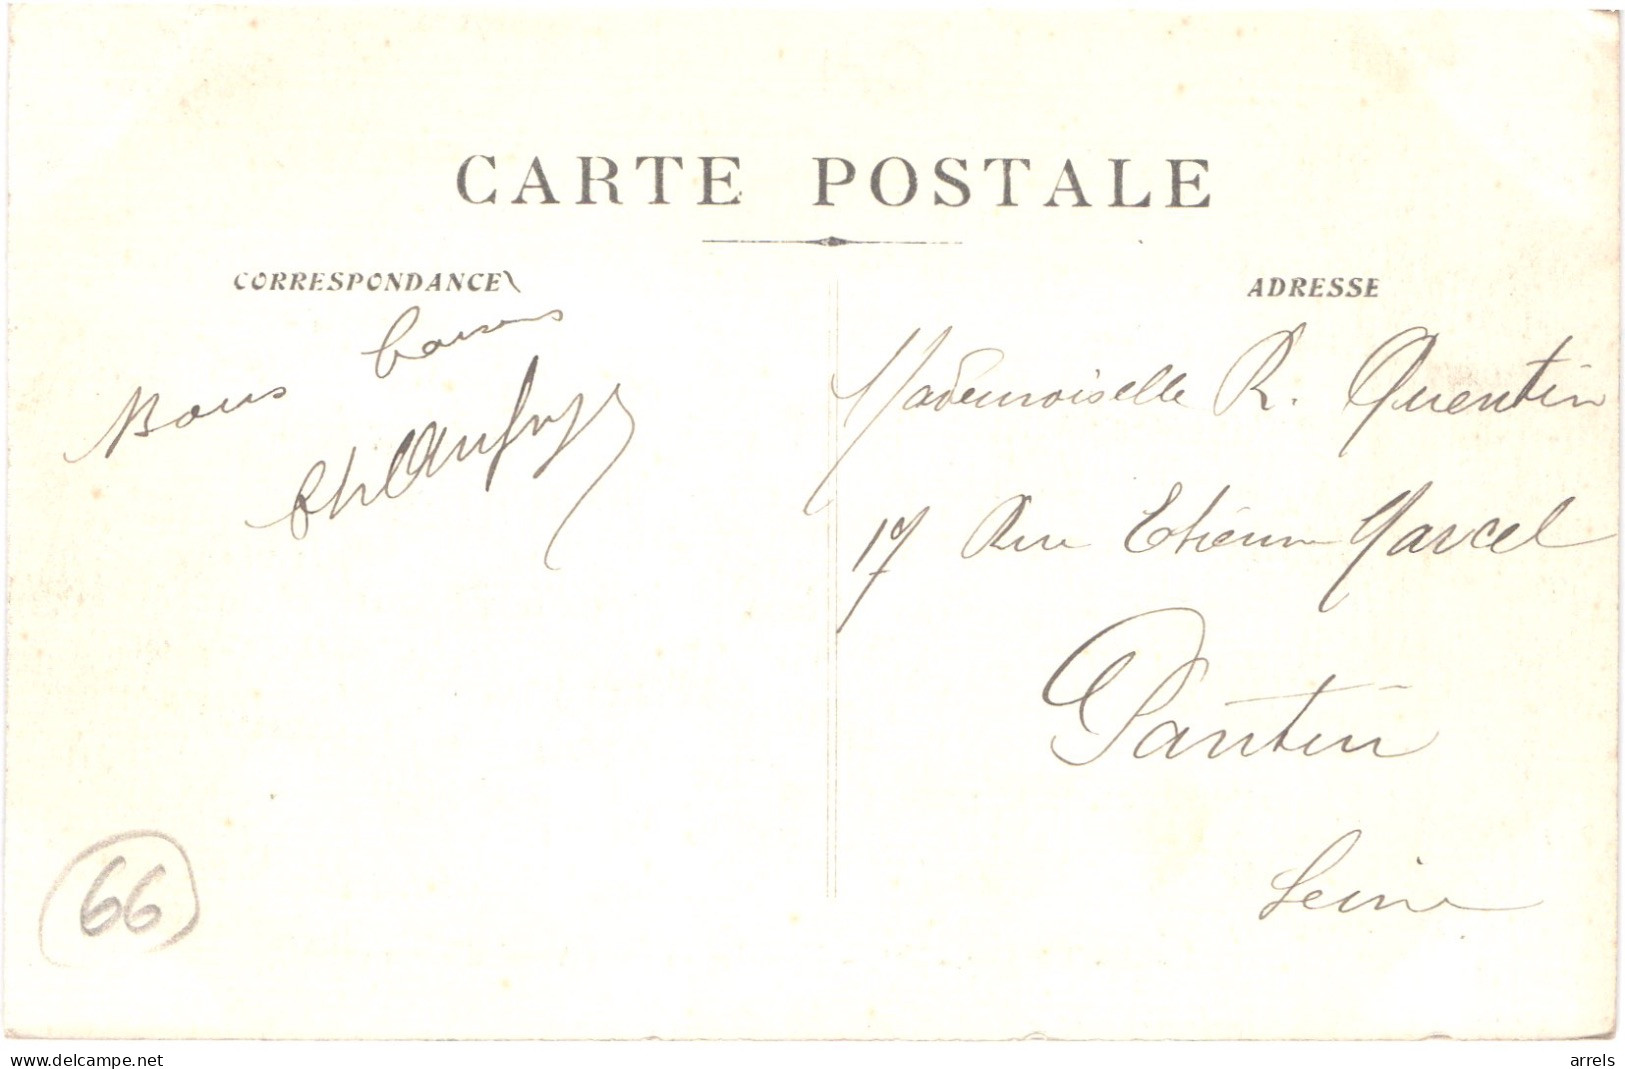 CARTE POSTALE
CORRESPONDANCE
ADRESSE
Bons baisers
Mademoiselle R. Quentin
17 Rue Etienne Marcel
Pantin
Seine
66
www.delcampe.net
arrels